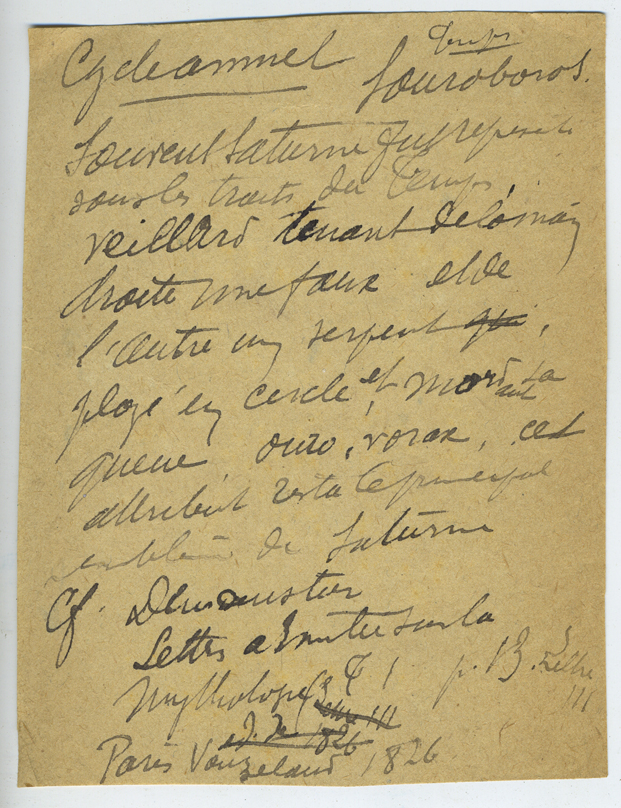 Temps
Cycle annuel l'ouroboros.
Souvent Saturne fut représenté
sous les traits du Temps,
veillard tenant de la main
droite une faux et de
l'autre un serpent qui,
ployé en cercle et mordant sa
queue, ouro, vorax, cet
attribut resta le principal
emblème de Saturne
Cf. Demoustier
Lettres à Emilie sur la
Mythologie T I p. 13. Lettre
III
ed. de 1826
Paris 1826